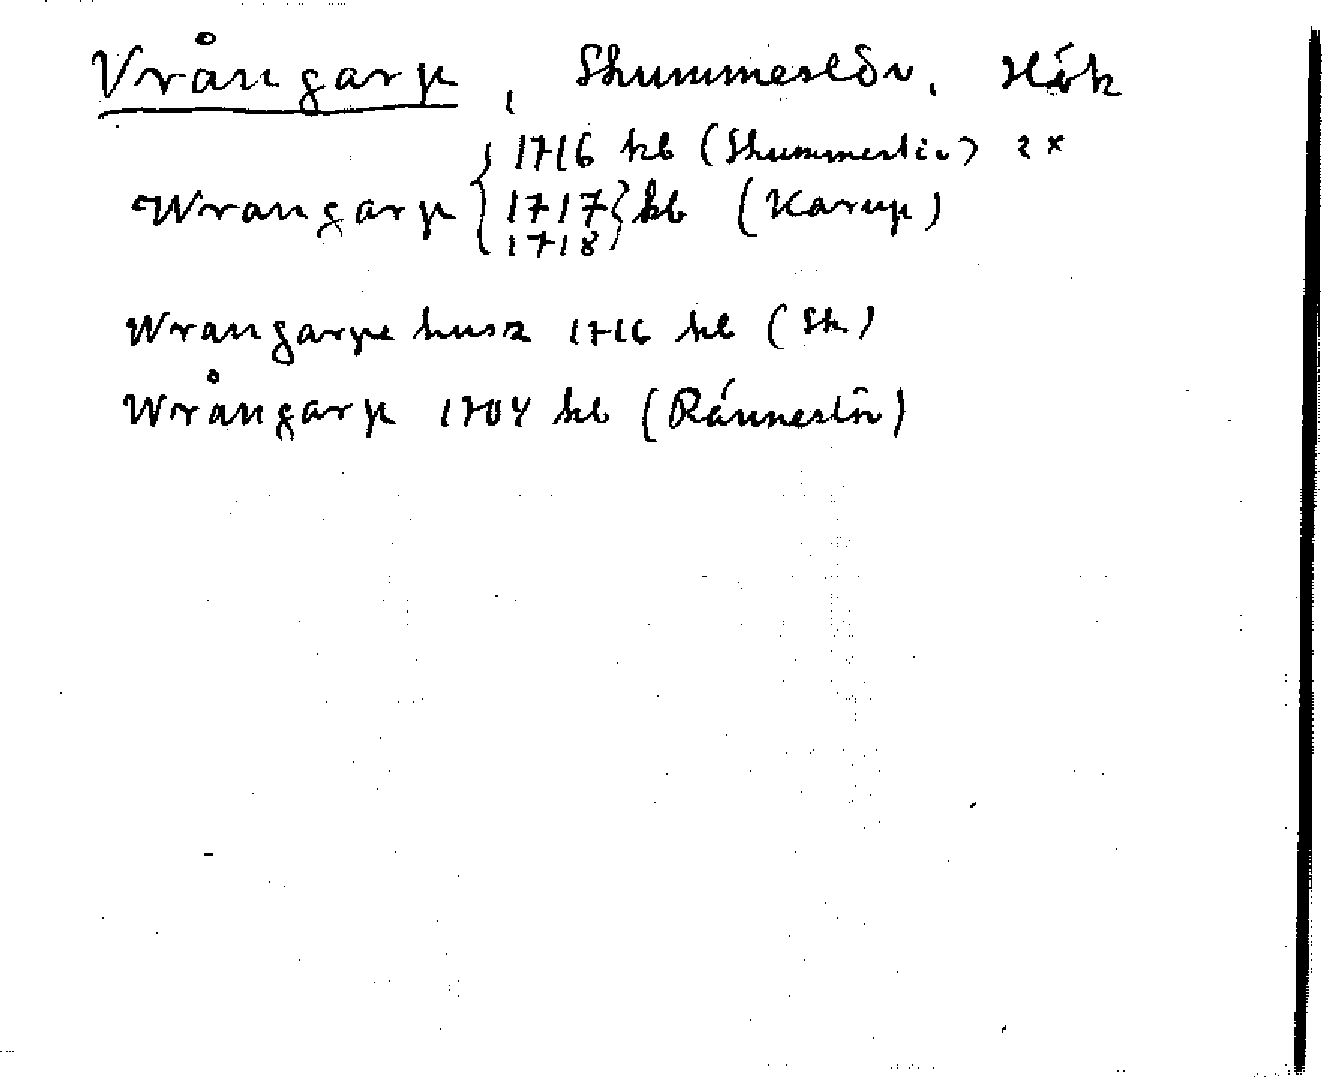 Vrångarp, Skummeslöv, Hök
1716 kb (Skummeslöv) 2x
Wrangarp 1717 kb (Karup)
1718
Wrangarpe husz 1716 kb (Sk)
Wrångarp 1704 kb (Ränneslöv)